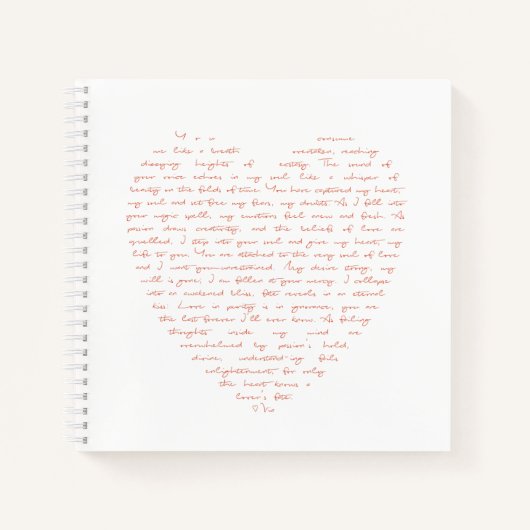 You consume
me like a breath overtaken, reaching
dizzying heights of ecstasy. The sound of
your voice echoes in my soul like a whisper of
beauty on the folds of time. You have captured my heart,
my soul and set free my fears, my doubts. As I fall into
your magic spell, my emotions feel anew and fresh. As
passion draws creativity, and the beliefs of love are
quelled, I step into your soul and give my heart, my
life to you. You are attached to the very soul of love
and I want you—unrestrained. My desire strong, my
will is gone; I am fallen at your mercy. I collapse
into an awakened bliss, fate reveals in an eternal
kiss. Love in purity is in ignorance, you are
the last forever I'll ever know. As foiling
thoughts inside my mind are
overwhelmed by passion's hold,
divine, understand-ing foils
enlightenment, for only
the heart knows a
lover's fate.
♡Vis